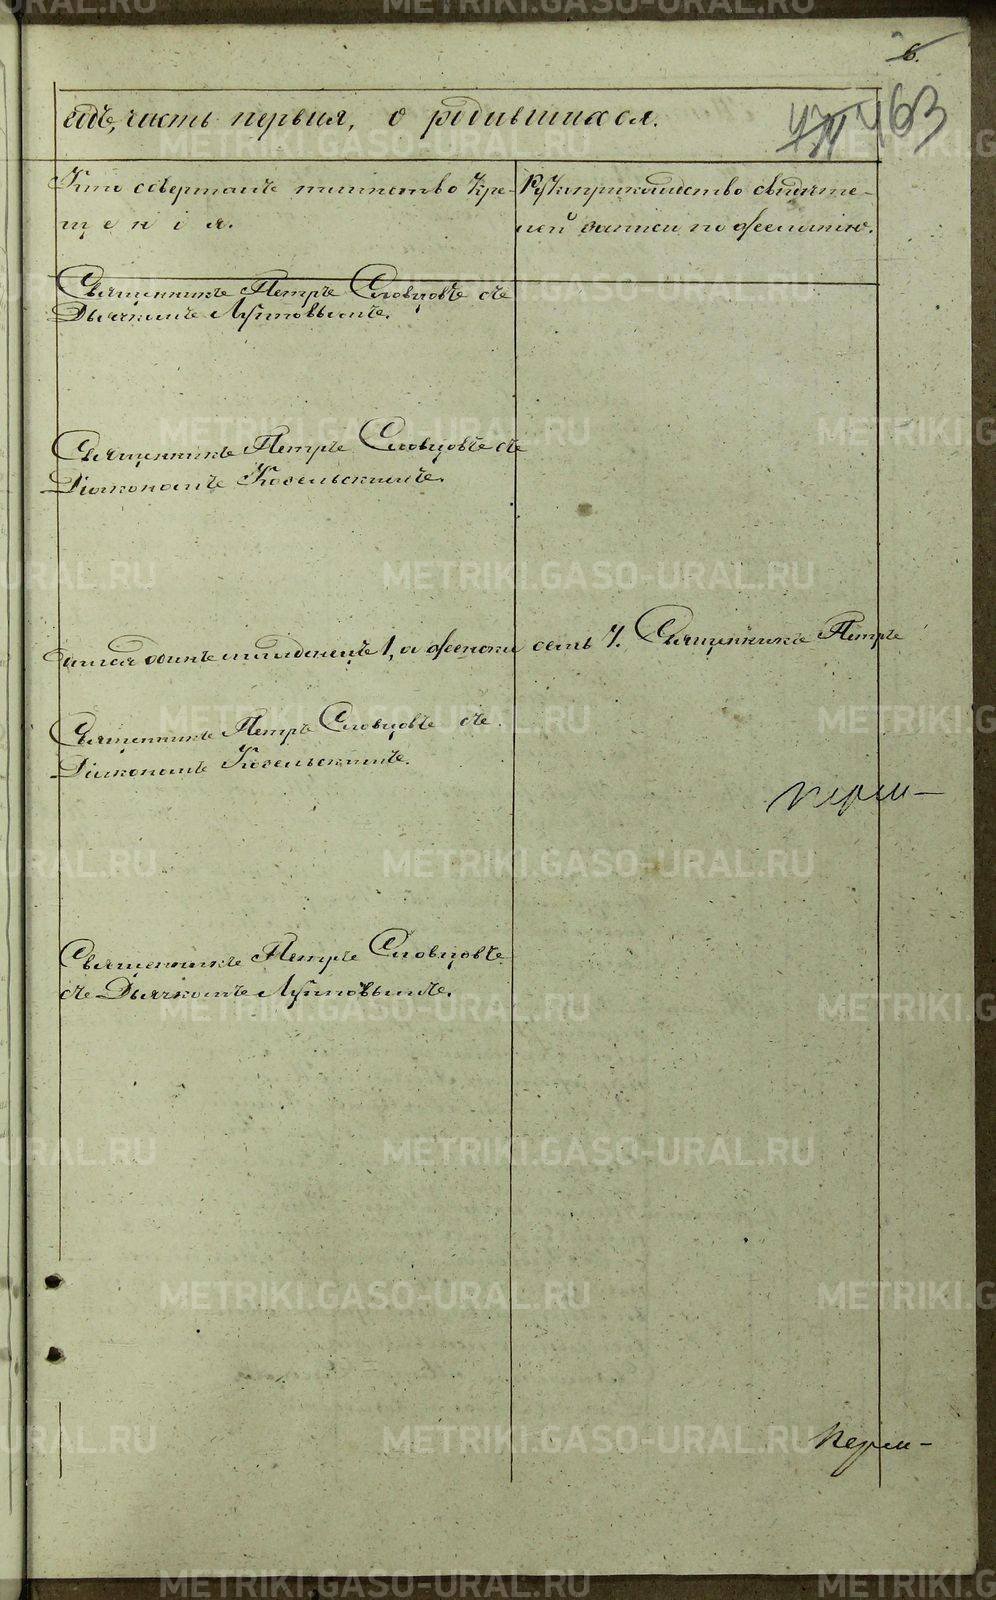 6.
463
годъ, часть первая, о родившихся.
Кто совершалъ таинство кре-
щенія.
Рукоприкладство свидѣте-
лей записи по желанію.
Священникъ Петръ Словцовъ съ
Дьячкомъ Лупповымъ.
Священникъ Петръ Словцовъ съ
Діакономъ Козельскимъ.
одинъ младенецъ 1, а женска семь 7. Священникъ Петръ
Священникъ Петръ Словцовъ съ
Діакономъ Козельскимъ.
Перм-
Священникъ Петръ Словцовъ
съ Дьячкомъ Лупповымъ.
Перм-
METRIKI.GASO-URAL.RU